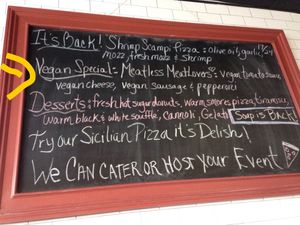 It's Back! Shrimp Scampi Pizza: olive oil, garlic,
mozz, fresh mozz & Shrimp
Vegan Special: Meatless MeatLovers: vegan tomato sauce,
vegan cheese, vegan sausage & pepperoni
Desserts: fresh, hot sugar donuts, warm smores pizza, tiramisu,
Warm black & white soufflé, Cannoli, Gelato
Soup is Back!
Try our Sicilian Pizza it's Delish!
We CAN CATER OR HOST YOUR Event!